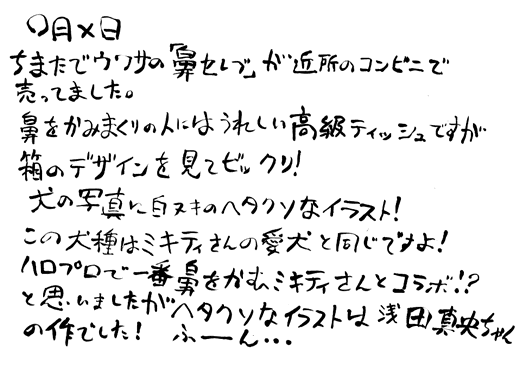 ○月×日
ちまたでウワサの「鼻セレブ」が近所のコンビニで
売ってました。
鼻をかみまくりの人にはうれしい高級ティッシュですが
箱のデザインを見てビックリ!
犬の写真に白ヌキのヘタクソなイラスト!
この犬種はミキティさんの愛犬と同じですよ!
ハロプロで一番鼻をかむミキティさんとコラボ!?
と思いましたがヘタクソなイラストは浅田真央ちゃん
の作でした! ふーん・・・